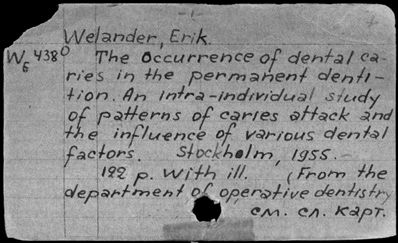 Welander, Erik.
W6 4380 The Occurrence of dental ca-
ries in the permanent denti-
tion. An intra-individual study
of patterns of caries attack and
the influence of various dental
factors. Stockholm, 1955. -
122 p. with ill. (From the
department of operative dentistry
см. сл. карт.